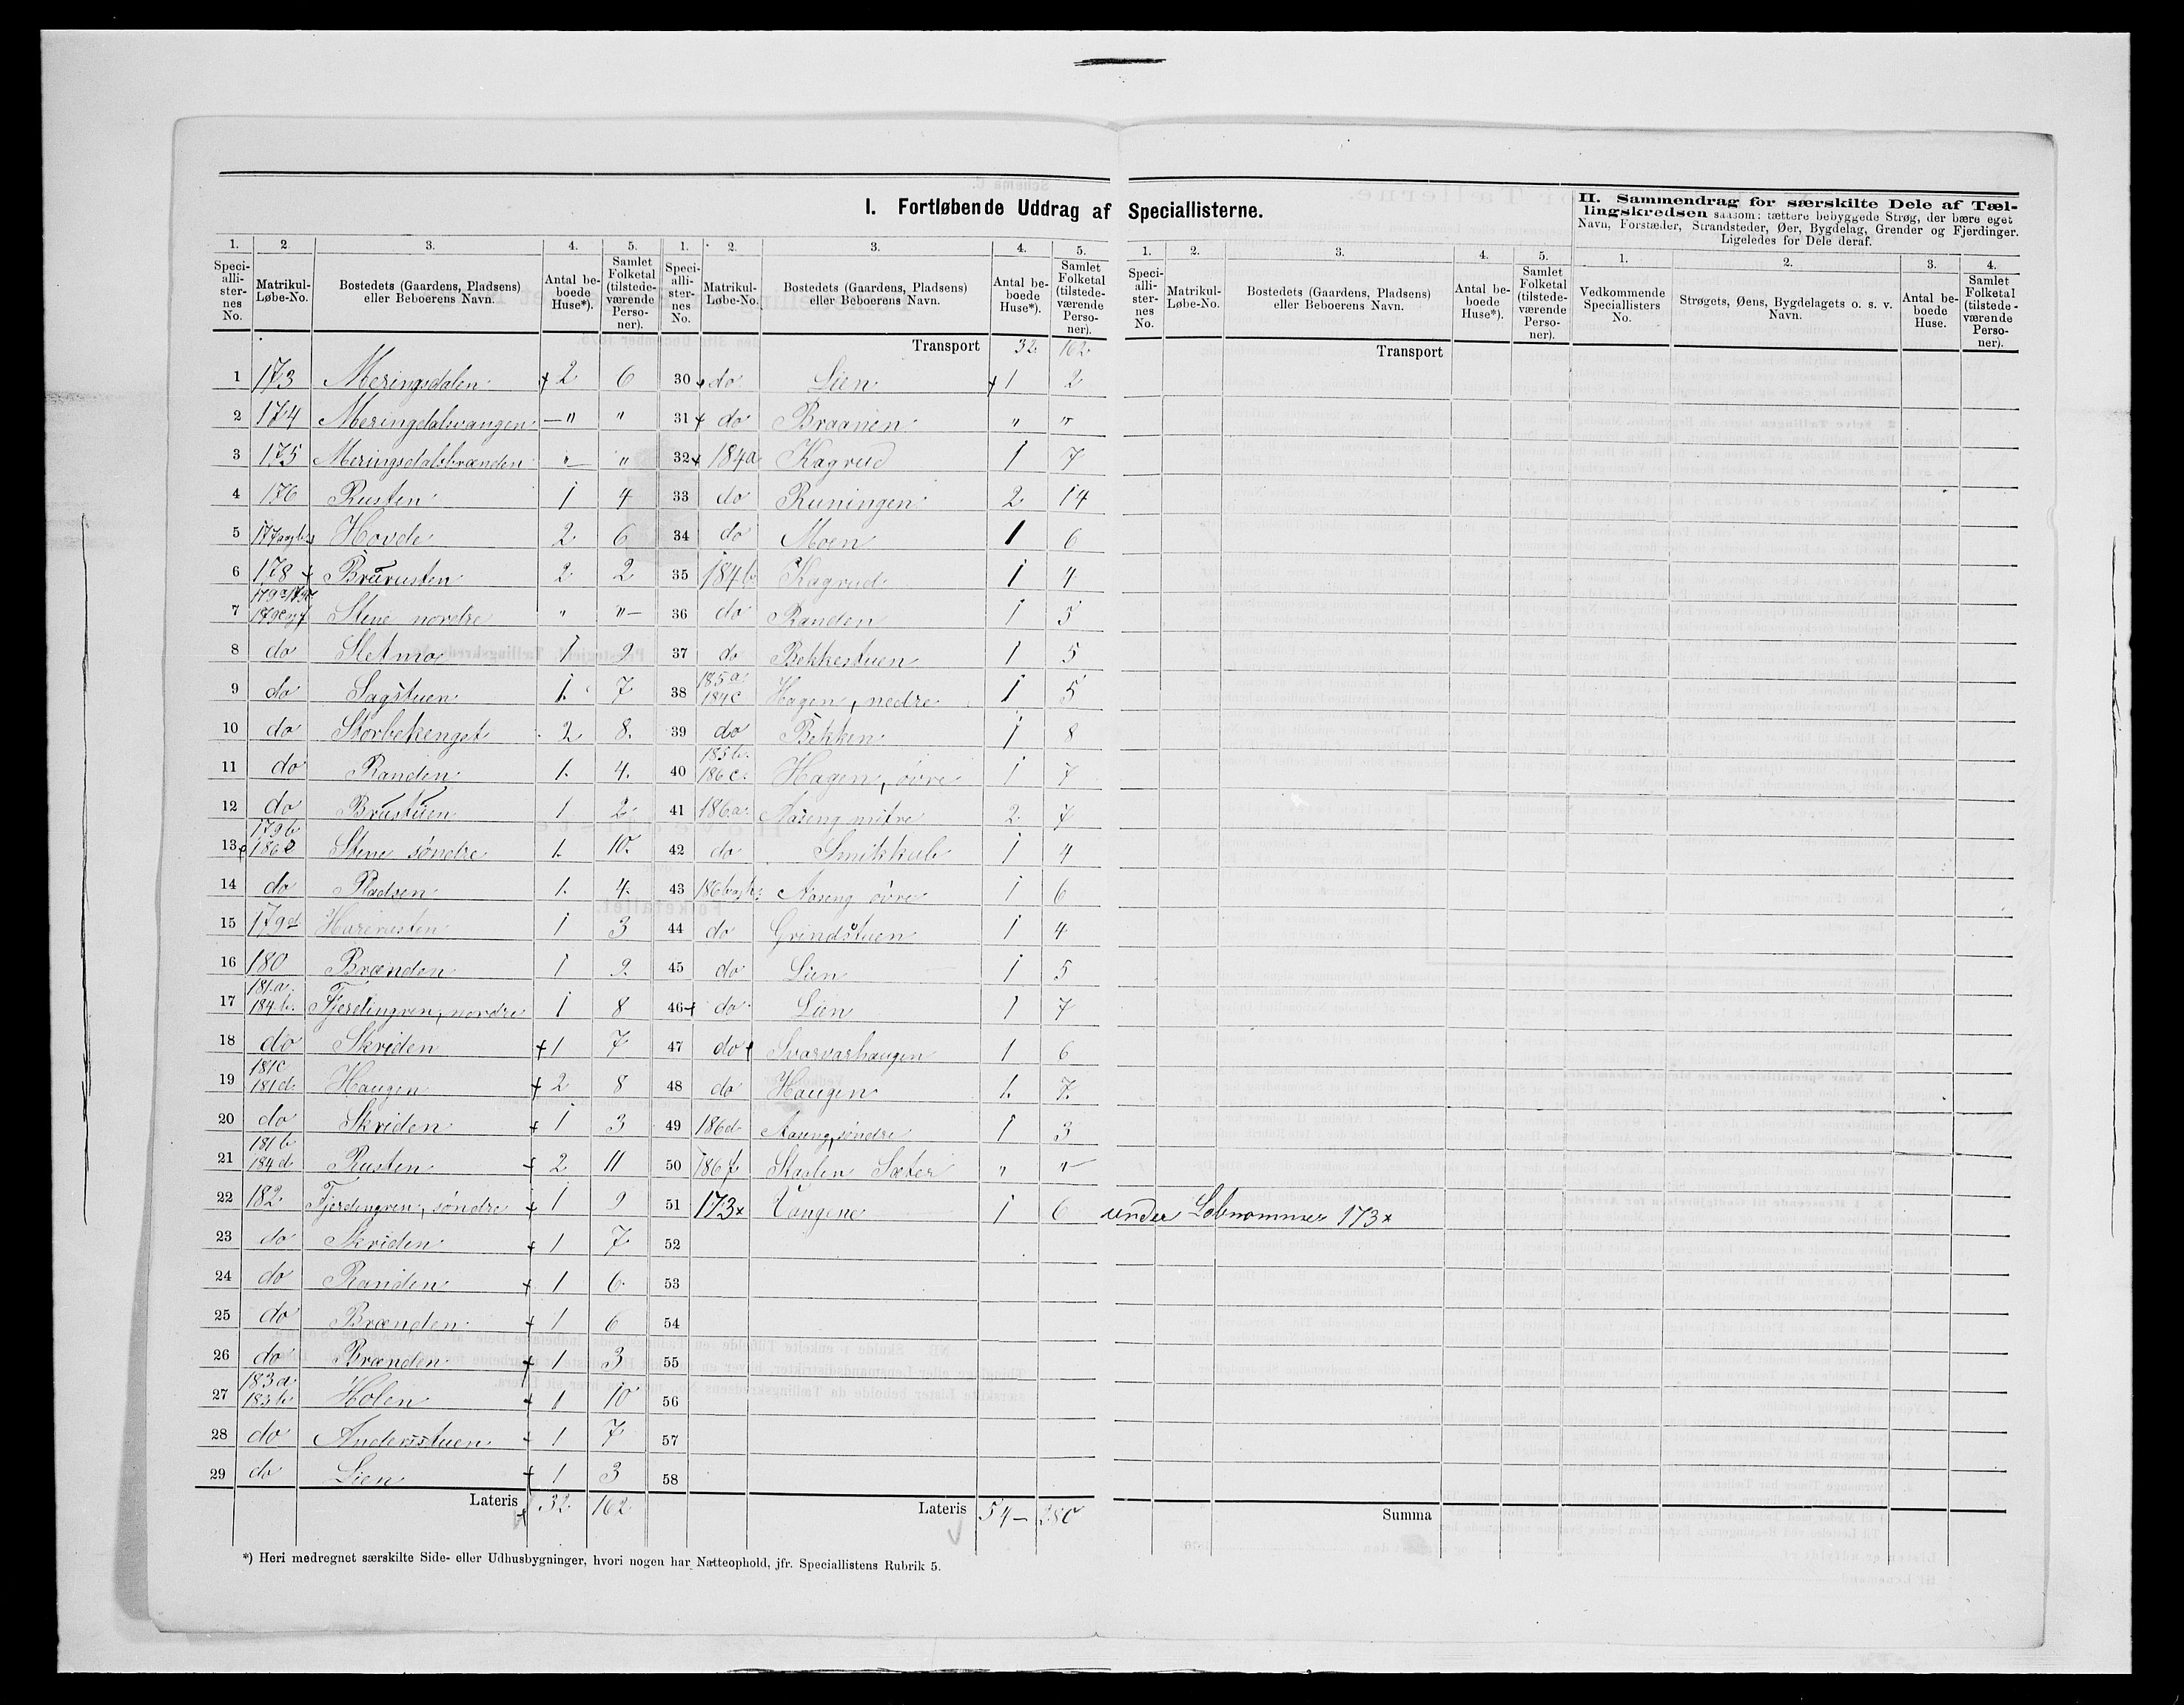 I. Fortløbende Uddrag af Speciallisterne.
II. Sammendrag for særskilte Dele af Tæl-
lingskredsen saasom: tættere bebyggede Strøg, der bære eget
Navn, Forstæder, Strandsteder, Øer, Bygdelag, Grender og Fjerdinger.
Ligeledes for Dele deraf.
1. 2 3. 4. 5. 1. 2. 3. 4. 5. 1. 2. 3. 4. 5. 1. 2. 3. 4.
Speciallisternes No. Matrikul-Løbe-No. Bostedets (Gaardens, Pladsens) eller Beboerens Navn. Antal beboede Huse*). Samlet Folketal (tilstedeværende Personer).
Speciallisternes No. Matrikul-Løbe-No. Bostedets (Gaardens, Pladsens) eller Beboerens Navn. Antal beboede Huse*). Samlet Folketal (tilstedeværende Personer).
Speciallisternes No. Matrikul-Løbe-No. Bostedets (Gaardens, Pladsens) eller Beboerens Navn. Antal beboede Huse*). Samlet Folketal (tilstedeværende Personer).
Vedkommende Speciallisters No. Strøgets, Øens, Bygdelagets o. s. v. Navn. Antal beboede Huse. Samlet Folketal (tilstedeværende Personer).
1 173 Meringsdalen 2 6
2 174 Meringdalsvangen — " "
3 175 Meringsdalsbrænden " "
4 176 Rusten 1 4
5 Hovde 2 6
6 178 Brurusten 2 2
7 Stene nordre " "
8 do Sletmo 1 2
9 do Sagstuen 1. 7
10 do Storbekenget 2 8.
11 do Randen 1. 4.
12 do Brustuen 1 2
13 179b Stene søndre 1. 10.
14 do Pladsen 1. 4.
15 179d Harerusten 1 3
16 180 Brænden 1 9.
17 181.a. 184.b. Fjerdingren, nordre 1 8
18 do Skriden 1 7
19 181c 181d. Haugen 2 8
20 do Skriden 1 3
21 181b 184d Rusten 2 11
22 182. Fjerdingren, søndre 1 9
23 do Skriden 1 7
24 do Randen 1 6
25 do Brænden 1 6
26 do Brænden 1 3
27 183a 183b Holen 1 10
28 do Anderstuen 1 7
29 do Lien 1 3
Lateris 32. 162.
Transport 32. 162.
30 do Lien 1 2
31 do Braanen " "
32 184a Kagrud 1 7
33 do Runingen 2 14
34 do Moen 1 6
35 184b. Kagrud 1 4
36 do Randen 1 5
37 do Bekkestuen 1 5
38 185a. 184c Hagen, nedre 1 5
39 do Bekken 1 8
40 185b. 186c. Hagen, øvre 1 7
41 186.a. Aaseng mitre 2 7
42 do Smikkub 1 4
43 Aaseng øvre 1 6
44 do Grindstuen 1 4
45 do Lien 1 5
46 do Lien 1 7
47 do Svarvarhaugen 1 6
48 do Haugen 1. 7.
49 186d. Aaseng, søndre 1 3
50 186f. Staalen Sæter " "
51 173x Vangene 1 6 under Løbnommer 173x
52
53
54
55
56
57
58
Lateris 54— 280
Transport
Summa
*) Heri medregnet særskilte Side- eller Udhusbygninger, hvori nogen har Natteophold, jfr. Speciallistens Rubrik 5.